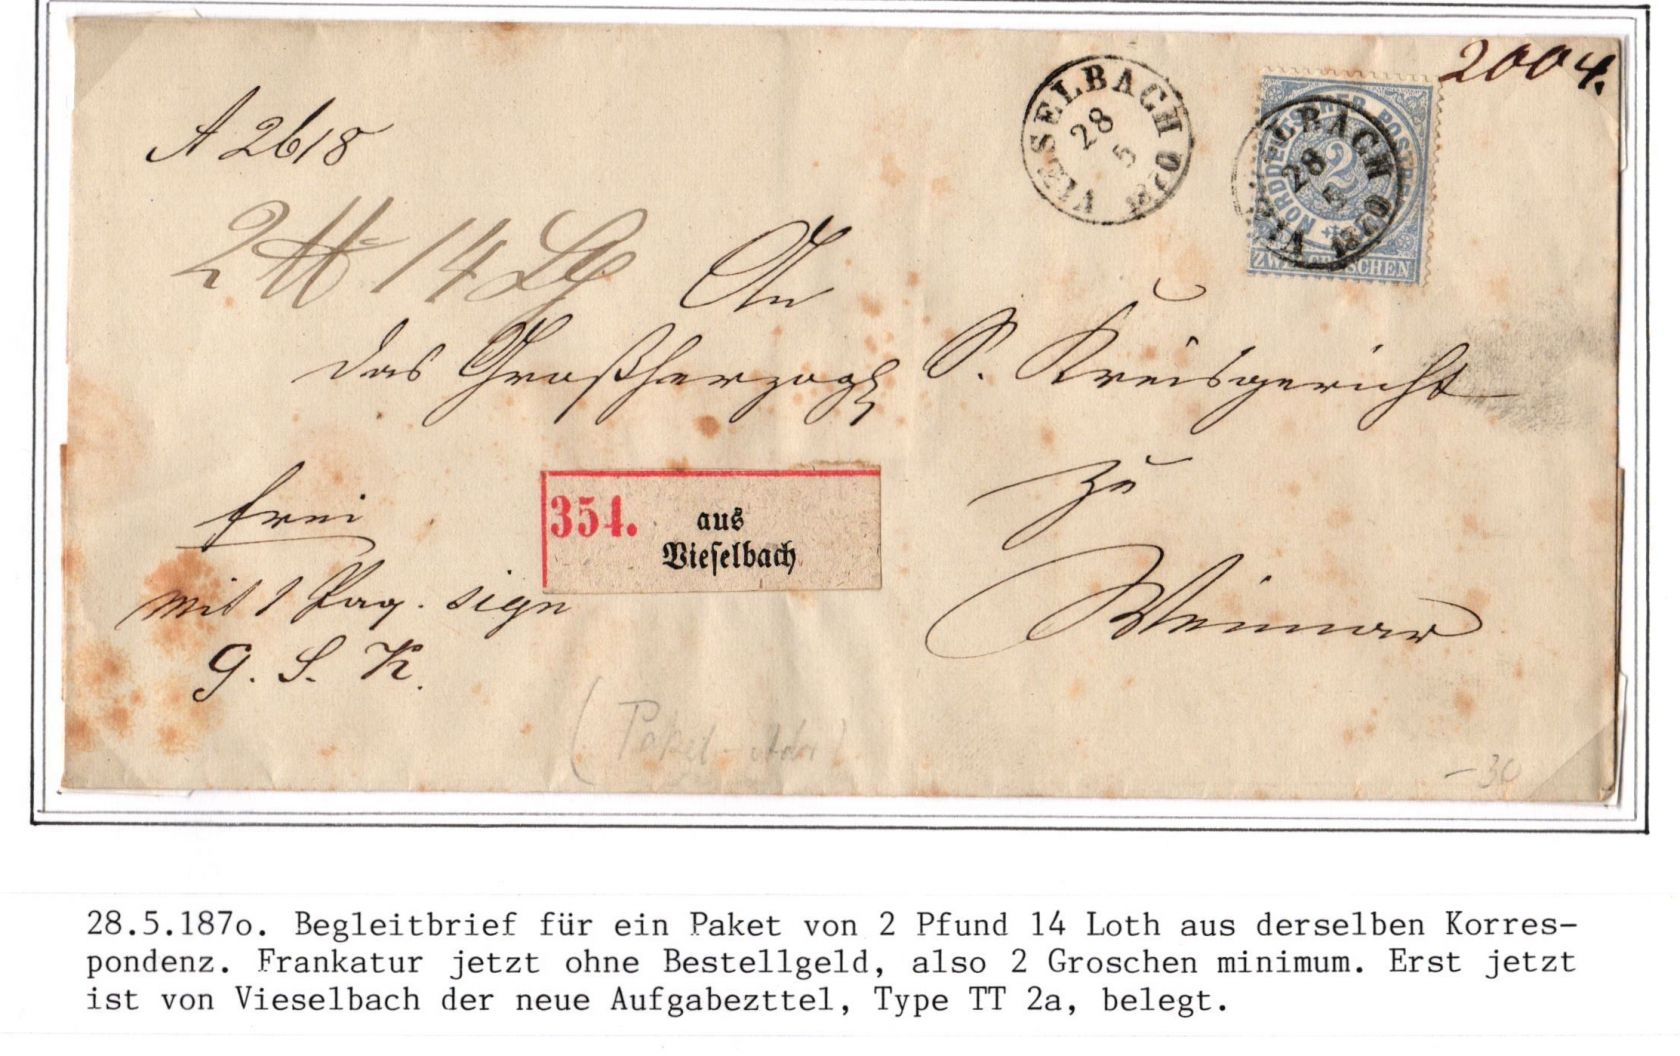 2004.
A 2618
VIESELBACH
28
5
NORDDEUTSCHER POSTBEZIRK
2
ZWEI GROSCHEN
VIESELBACH
28
5
2 ℔ 14 Lth
An
das Großherzogl. S. Kreisgericht
zu
Weimar
frei
mit 1 Paq. sign
G. S. K.
354.
aus
Vieselbach
(Paket-Adr)
-30
28.5.187o. Begleitbrief für ein Paket von 2 Pfund 14 Loth aus derselben Korres-
pondenz. Frankatur jetzt ohne Bestellgeld, also 2 Groschen minimum. Erst jetzt
ist von Vieselbach der neue Aufgabezttel, Type TT 2a, belegt.